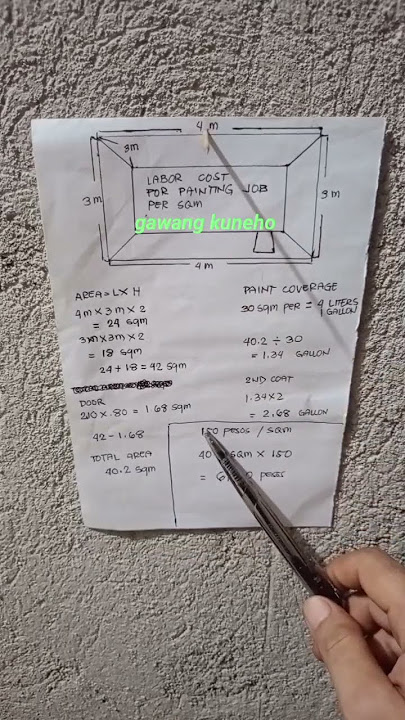 4 m
3m
3 m
3 m
LABOR COST
FOR PAINTING JOB
PER SQM
gawang kuneho
4 m
AREA = L X H
4m X 3m X 2
= 24 sqm
3m X 3m X 2
= 18 sqm
24 + 18 = 42 sqm
DOOR
210 X .80 = 1.68 sqm
42 - 1.68
TOTAL AREA
40.2 sqm
PAINT COVERAGE
30 sqm PER = 4 LITERS
GALLON
40.2 ÷ 30
= 1.34 GALLON
2ND COAT
1.34 X 2
= 2.68 GALLON
150 PESOS / SQM
40 SQM X 150
= 6 PESOS